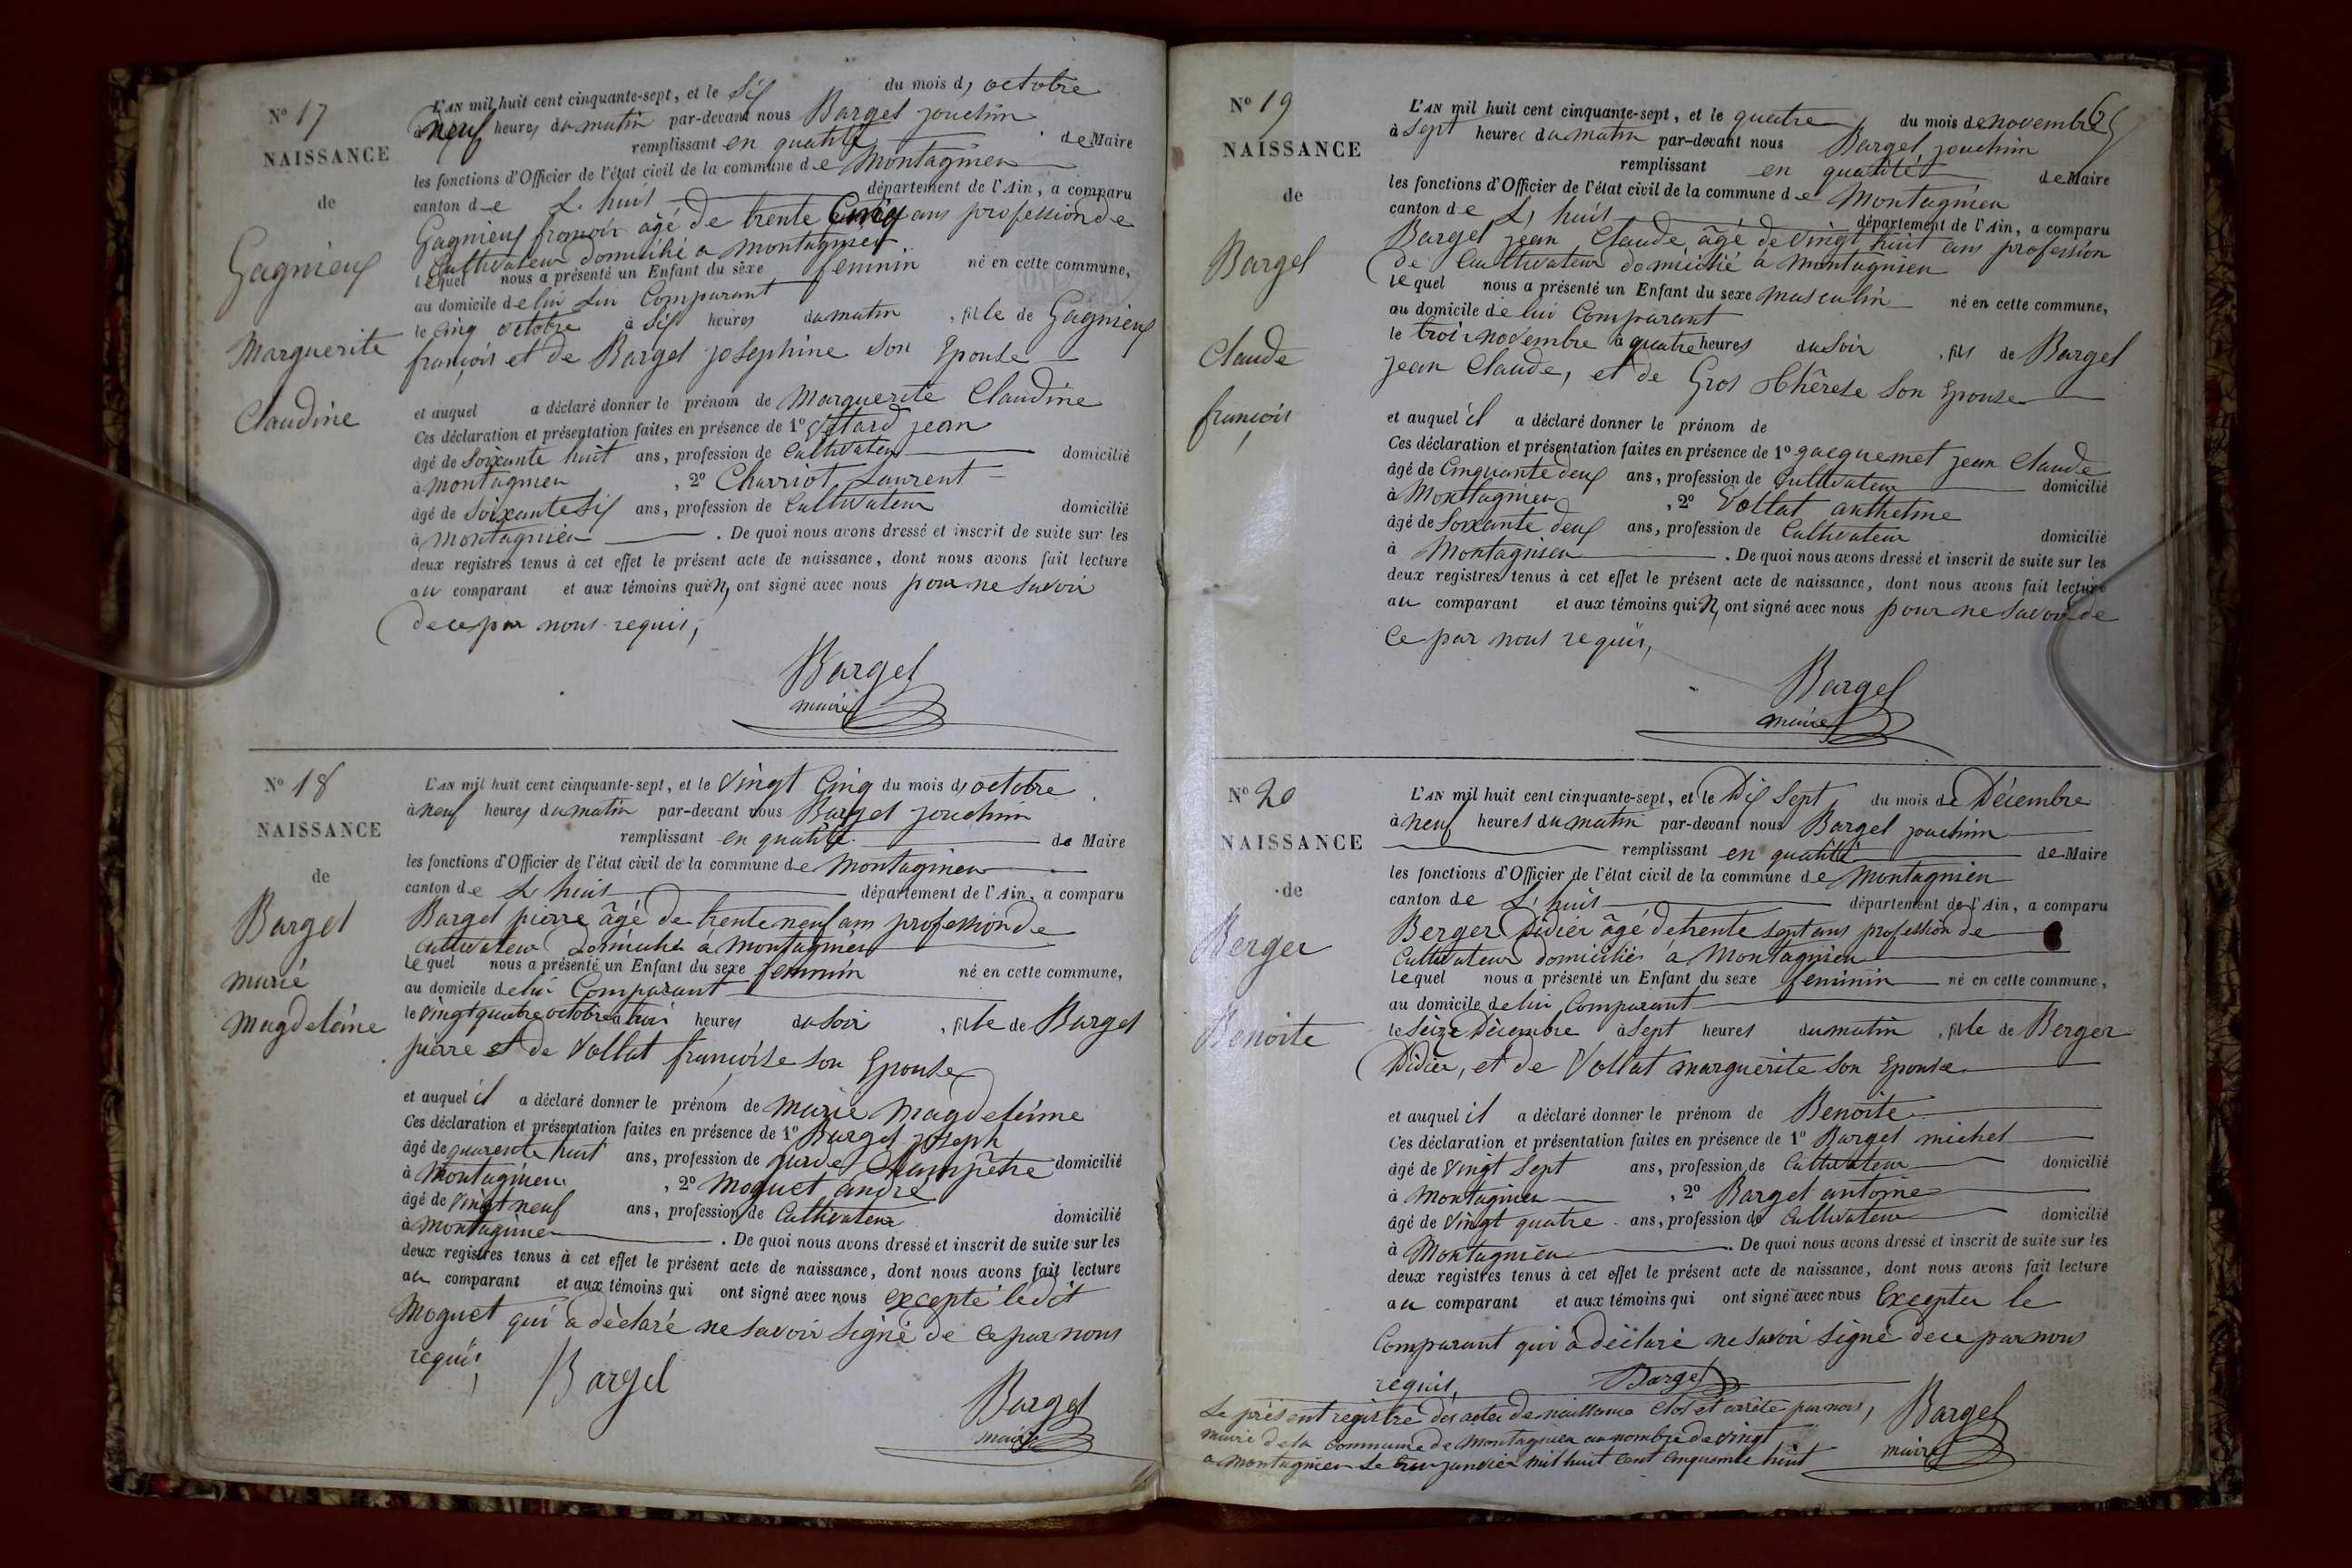 N° 17
NAISSANCE
de
Gagnieux
Marguerite
Claudine
L'AN mil huit cent cinquante-sept, et le Six du mois d, octobre
à neuf heures du matin par-devant nous Bargel jouchim
remplissant en qualité de Maire
les fonctions d'Officier de l'état civil de la commune de Montagnieu
canton de L'huis département de l'Ain, a comparu
Gagnieux françois âgé de trente Cinq ans profession de
Cultivateur domicilié a montagnieu
lequel nous a présenté un Enfant du sexe feminin né en cette commune,
au domicile de lui Comparant
le Cinq octobre à Six heures du matin , fille de Gagnieux
françois et de Bargel josephine Son Epouse
et auquel a déclaré donner le prénom de Marguerite Claudine
Ces déclaration et présentation faites en présence de 1° jean
âgé de Soixante huit ans, profession de Cultivateur domicilié
à Montagnieu , 2° Charriot Laurent
âgé de Soixante Six ans, profession de Cultivateur domicilié
à Montagnieu . De quoi nous avons dressé et inscrit de suite sur les
deux registres tenus à cet effet le présent acte de naissance, dont nous avons fait lecture
au comparant et aux témoins qui n, ont signé avec nous pour ne Savoir
de ce par nous requis,
Bargel
maire
N° 18
NAISSANCE
de
Bargel
marie
Magdeleine
L'AN mil huit cent cinquante-sept, et le Vingt Cinq du mois d, octobre
à neuf heures du matin par-devant nous Bargel jouchim
remplissant en qualité de Maire
les fonctions d'Officier de l'état civil de la commune de Montagnieu
canton de L'huis département de l'Ain, a comparu
Bargel pierre âgé de trente neuf ans profession de
Cultivateur Domicilié à Montagnieu
lequel nous a présenté un Enfant du sexe feminin né en cette commune,
au domicile de lui Comparant
le Vingt quatre octobre à trois heures du Soir , fille de Bargel
pierre et de Vollat françoise Son Epouse
et auquel il a déclaré donner le prénom de Marie Magdeleine
Ces déclaration et présentation faites en présence de 1° Bargel joseph
âgé de quarente huit ans, profession de garde Champêtre domicilié
à Montagnieu , 2° Moguet andré
âgé de Vingt neuf ans, profession de Cultivateur domicilié
à Montagnieu . De quoi nous avons dressé et inscrit de suite sur les
deux registres tenus à cet effet le présent acte de naissance, dont nous avons fait lecture
au comparant et aux témoins qui ont signé avec nous excepté ledit
Moguet qui a déclaré ne Savoir Signé de ce par nous
requis,
Bargel
Bargel
maire
N° 19
NAISSANCE
de
Bargel
Claude
françois
65
L'AN mil huit cent cinquante-sept, et le quatre du mois de novembre
à Sept heures du matin par-devant nous Bargel jouchim
remplissant en qualité de Maire
les fonctions d'Officier de l'état civil de la commune de Montagnieu
canton de L, huis département de l'Ain, a comparu
Bargel jean Claude, âgé de Vingt huit ans profession
de Cultivateur domicilié a Montagnieu
lequel nous a présenté un Enfant du sexe masculin né en cette commune,
au domicile de lui Comparant
le trois novembre à quatre heures du Soir , fils de Bargel
jean Claude, et de Gros Thérese Son Epouse
et auquel il a déclaré donner le prénom de
Ces déclaration et présentation faites en présence de 1° gacquemet jean Claude
âgé de Cinquante deux ans, profession de Cultivateur domicilié
à Montagnieu , 2° Vollat anthelme
âgé de Soixante deux ans, profession de Cultivateur domicilié
à Montagnieu . De quoi nous avons dressé et inscrit de suite sur les
deux registres tenus à cet effet le présent acte de naissance, dont nous avons fait lecture
au comparant et aux témoins qui N, ont signé avec nous pour ne Savoir de
Ce par nous requis,
Bargel
maire
N° 20
NAISSANCE
de
Berger
Benoite
L'AN mil huit cent cinquante-sept, et le Dix Sept du mois de Décembre
à neuf heures du matin par-devant nous Bargel jouchim
remplissant en qualité de Maire
les fonctions d'Officier de l'état civil de la commune de Montagnieu
canton de L, huis département de l'Ain, a comparu
Berger Didier âgé de trente Sept ans profession de
Cultivateur domicilié à Montagnieu
lequel nous a présenté un Enfant du sexe feminin né en cette commune,
au domicile de lui Comparant
le Seize Décembre à Sept heures du matin , fille de Berger
Didier, et de Vollat marguerite Son Epouse
et auquel il a déclaré donner le prénom de Benoite
Ces déclaration et présentation faites en présence de 1° Bargel michel
âgé de Vingt Sept ans, profession de Cultivateur domicilié
à Montagnieu , 2° Bargel antoine
âgé de Vingt quatre ans, profession de Cultivateur domicilié
à Montagnieu . De quoi nous avons dressé et inscrit de suite sur les
deux registres tenus à cet effet le présent acte de naissance, dont nous avons fait lecture
au comparant et aux témoins qui ont signé avec nous Excepter le
Comparant qui a déclaré ne Savoir Signé de ce par nous
requis, Bargel
Le présent registre des actes de naissance Clos et arrêté par nous,
maire de la Commune de Montagnieu au nombre de Vingt
a Montagnieu Le janvier mil huit Cent Cinquante huit
Bargel
maire